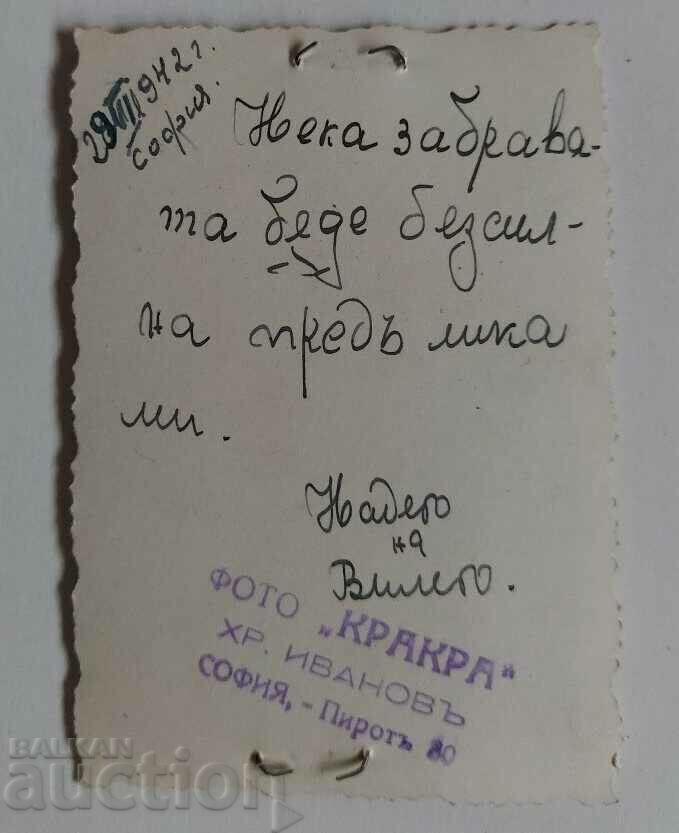 29 VIII 1942 г.
София.
Нека забравя-
та бѫде безсил-
на предъ лика
ми.
Надето
на
Вилето.
ФОТО „КРАКРА"
ХР. ИВАНОВЪ
СОФИЯ, - Пиротъ 80
BALKAN
auction